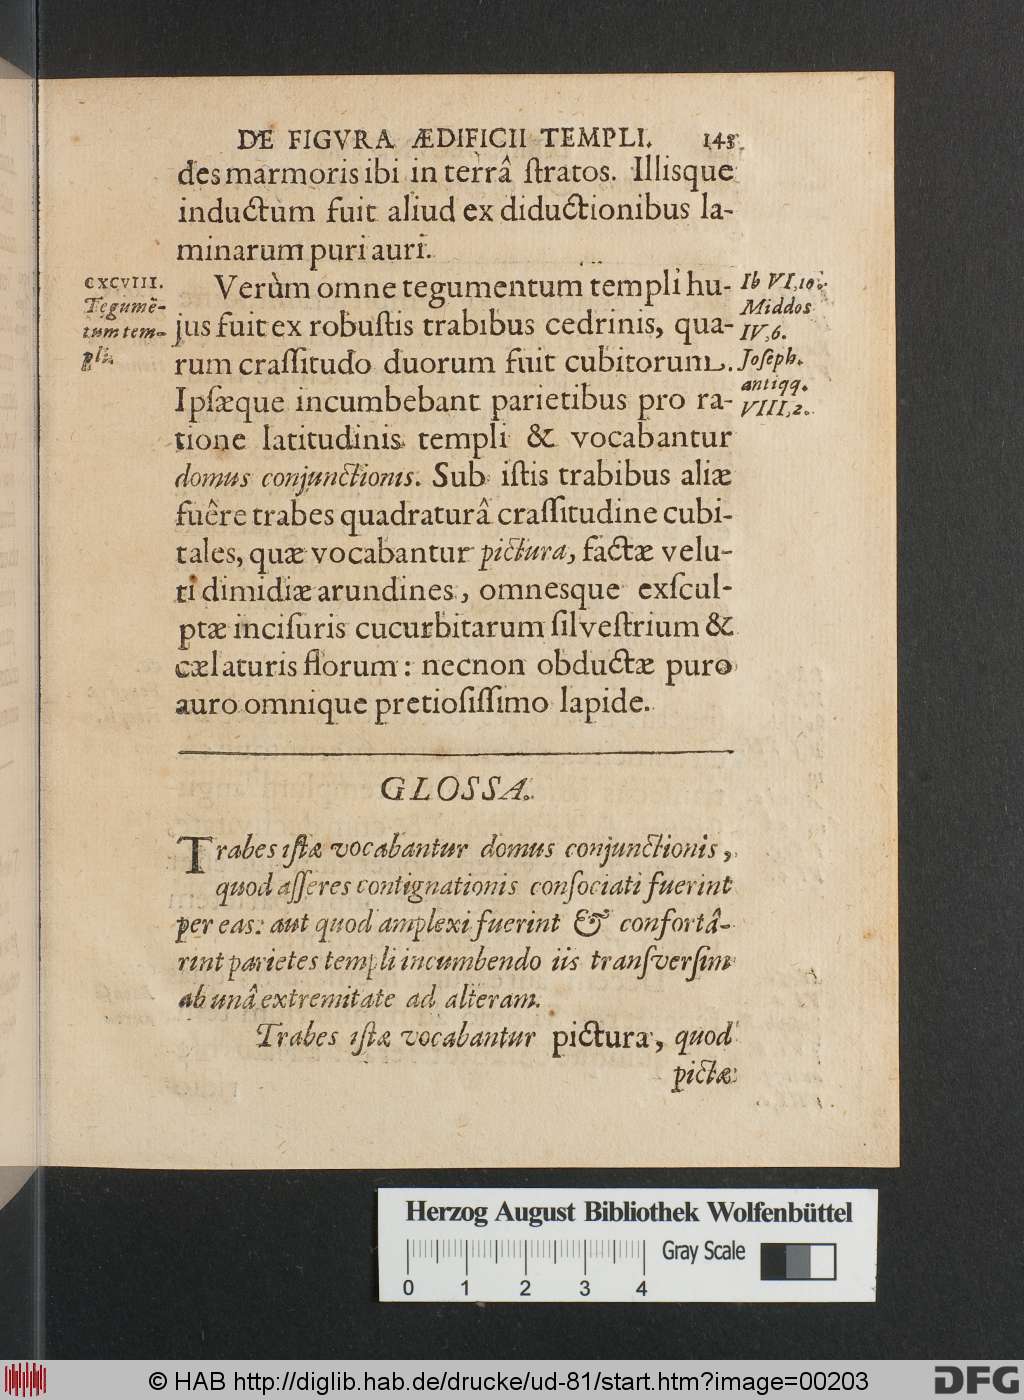 DE FIGVRA ÆDIFICII TEMPLI. 145.
des marmoris ibi in terrâ ſtratos. Illisque
inductum fuit aliud ex diductionibus la-
minarum puri auri.
CXCVIII.
Tegumẽ-
tum tem-
pli.
Verùm omne tegumentum templi hu-
jus fuit ex robuſtis trabibus cedrinis, qua-
rum craſſitudo duorum fuit cubitorum.
Ipſæque incumbebant parietibus pro ra-
tione latitudinis templi & vocabantur
domus conjunctionis. Sub iſtis trabibus aliæ
fuêre trabes quadraturâ craſſitudine cubi-
tales, quæ vocabantur pictura, factæ velu-
ti dimidiæ arundines, omnesque exſcul-
ptæ inciſuris cucurbitarum ſilveſtrium &
cælaturis florum: necnon obductæ puro
auro omnique pretioſiſſimo lapide.
Ib VI, 10.
Middos
IV, 6.
Joſeph.
antiqq.
VIII, 2.
GLOSSA.
Trabes iſtæ vocabantur domus conjunctionis,
quod aſſeres contignationis conſociati fuerint
per eas: aut quod amplexi fuerint & confortâ-
rint parietes templi incumbendo iis transverſim
ab unâ extremitate ad alteram.
Trabes iſtæ vocabantur pictura, quod
pictæ
Herzog August Bibliothek Wolfenbüttel
Gray Scale
0 1 2 3 4
© HAB http://diglib.hab.de/drucke/ud-81/start.htm?image=00203
DFG